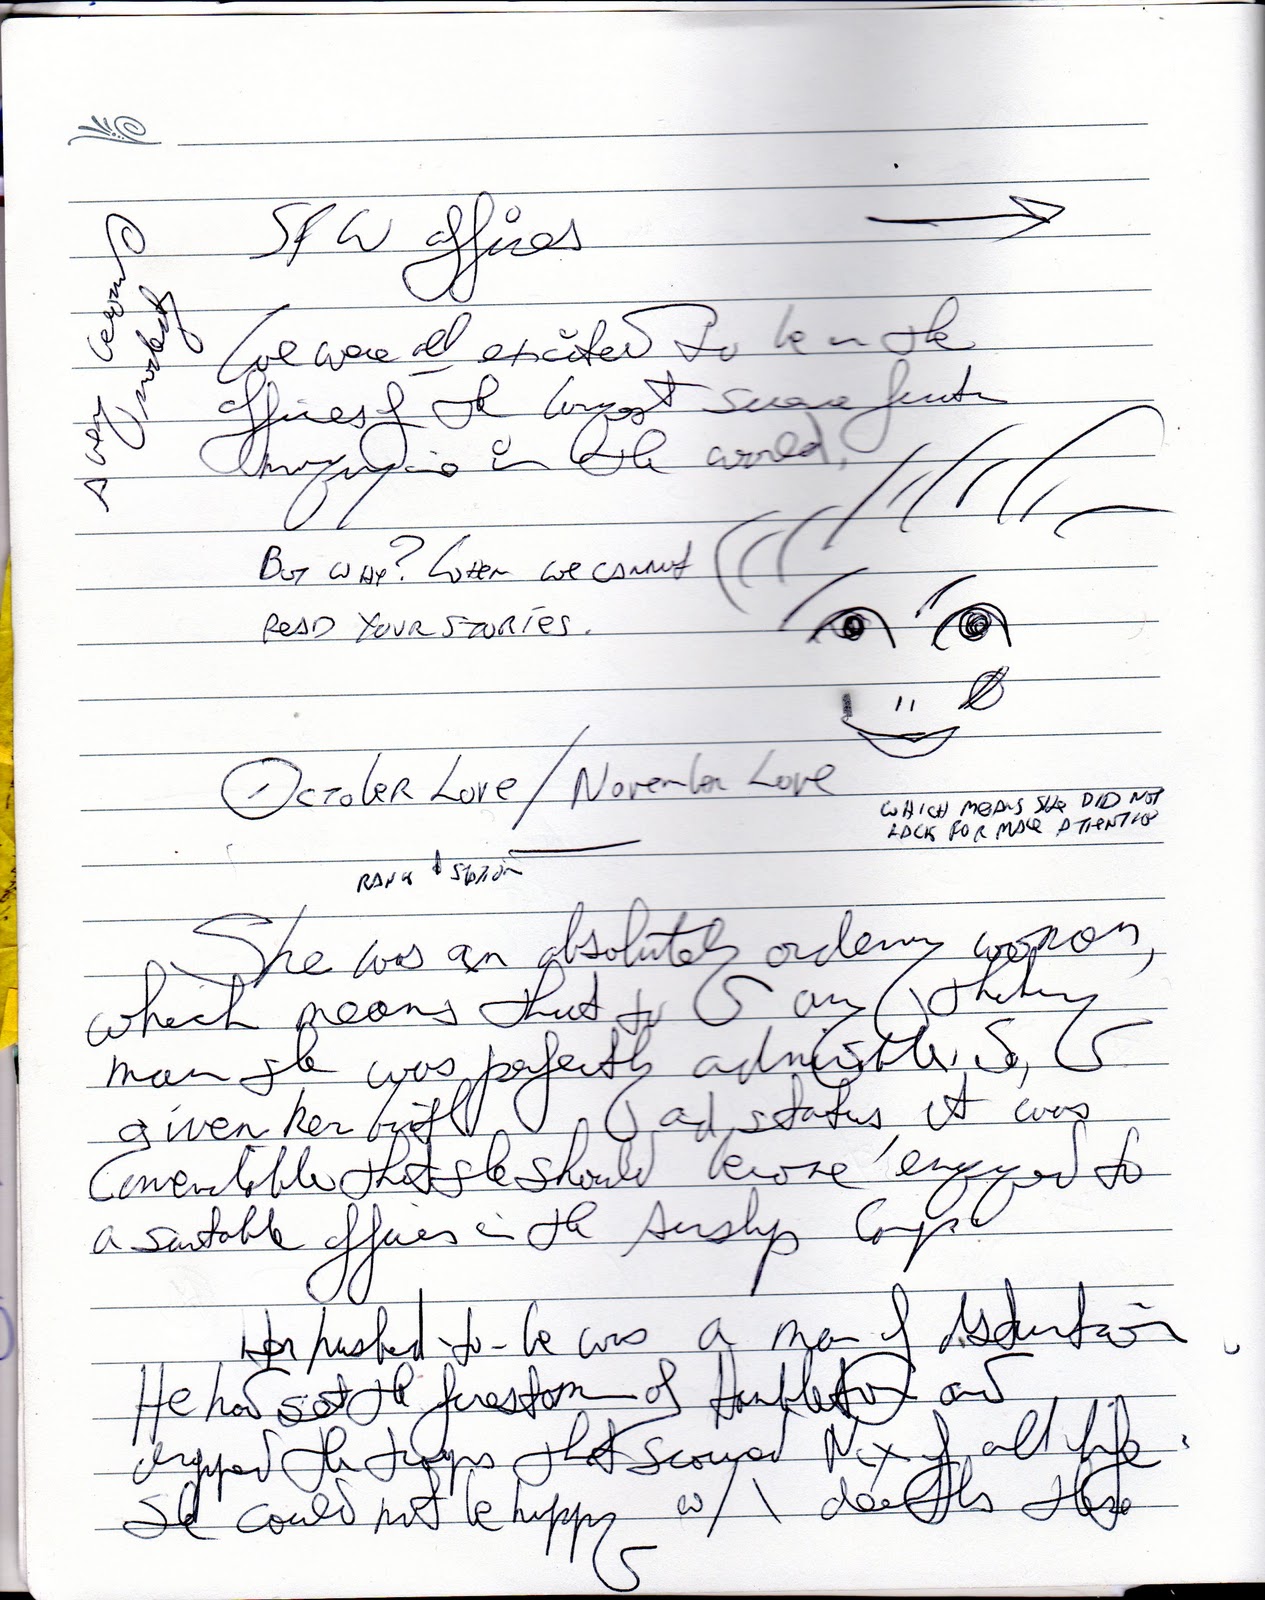 SFW offices
We were all excited to be in the
offices of the largest science fiction
magazine in the world.
But why? When we cannot
read your stories.
October Love / November Love
which means she did not
lack for male attention
rank & station
She was an absolutely ordinary woman,
which means that to any
man she was perfectly So,
given her birth and status it was
that she should become engaged to
a suitable officer in the Airship Corps.
Her husband-to-be was a man of distinction
He had set the firestorm of Hambleton and
dropped the troops that scoured Nix of all life.
She could not be happy w/ deaths these
A very
modesty